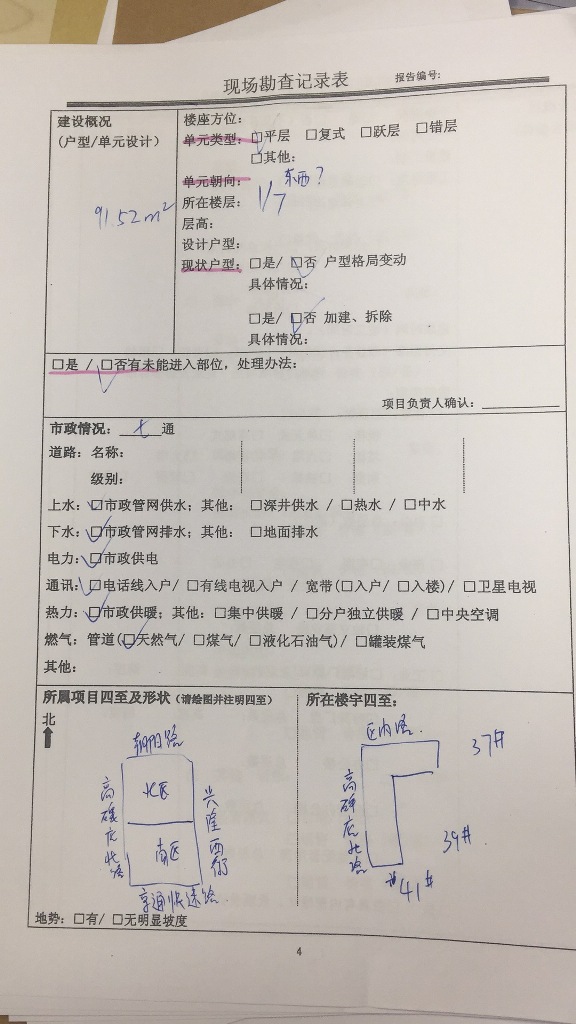 现场勘查记录表
报告编号:
建设概况
(户型/单元设计)
91.52m²
楼座方位:
单元类型: ☑平层 □复式 □跃层 □错层
□其他:
单元朝向: 东西?
所在楼层: 1/7
层高:
设计户型:
现状户型: □是/ ☑否 户型格局变动
具体情况:
□是/ ☑否 加建、拆除
具体情况:
□是 / ☑否有未能进入部位，处理办法:
项目负责人确认:
市政情况: 七 通
道路: 名称:
级别:
上水: ☑市政管网供水; 其他: □深井供水 / □热水 / □中水
下水: ☑市政管网排水; 其他: □地面排水
电力: ☑市政供电
通讯: ☑电话线入户/ □有线电视入户 / 宽带(□入户/ □入楼)/ □卫星电视
热力: ☑市政供暖; 其他: □集中供暖 / □分户独立供暖 / □中央空调
燃气: 管道(☑天然气/ □煤气/ □液化石油气)/ □罐装煤气
其他:
所属项目四至及形状 (请绘图并注明四至)
北
朝阳路
高碑店北路
北区
南区
兴隆西街
京通快速路
所在楼宇四至:
区内路
高碑店北路
37#
39#
41#
地势: □有/ □无明显坡度
4